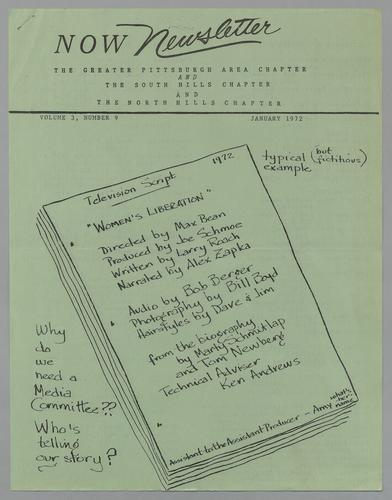 NOW Newsletter
THE GREATER PITTSBURGH AREA CHAPTER
AND
THE SOUTH HILLS CHAPTER
AND
THE NORTH HILLS CHAPTER
VOLUME 3, NUMBER 9 JANUARY 1972
typical (but fictitious)
example
Television Script 1972
"WOMEN'S LIBERATION"
Directed by Max Bean
Produced by Joe Schmoe
Written by Larry Roach
Narrated by Alex Zapka
Audio by Bob Berger
Photography by Bill Boyd
Hairstyles by Dave & Jim
from the biography
by Marty Schmutlap
and Tom Newberg
Technical Adviser
Ken Andrews
Assistant to the Assistant Producer - Amy what's her name
Why
do
we
need a
Media
Committee??
Who's
telling
our story?